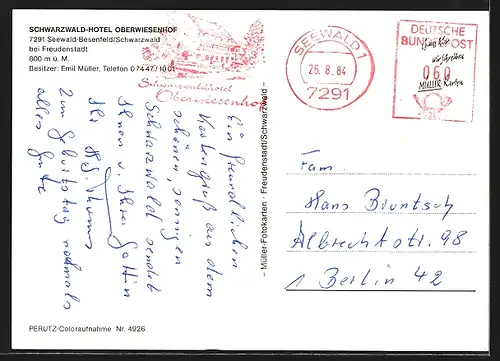 SCHWARZWALD-HOTEL OBERWIESENHOF
7291 Seewald-Besenfeld/Schwarzwald
bei Freudenstadt
800 m ü. M.
Besitzer: Emil Müller, Telefon 0 74 47/10 01
Schwarzwaldhotel
Oberwiesenhof
SEEWALD 1
26.8.84
7291
DEUTSCHE
BUNDESPOST
060
MÜLLER-Karten
Ein freundlichen
Kartengruß aus dem
schönen, sonnigen
Schwarzwald sendet
Ihnen u. Ihrer Gattin
Ihr
Zum Geburtstag nochmals
alles Gute
– Müller-Fotokarten · Freudenstadt/Schwarzwald –
Fam.
Hans Bruntsch
Albrechtstr. 98
1 Berlin 42
PERUTZ-Coloraufnahme Nr. 4926